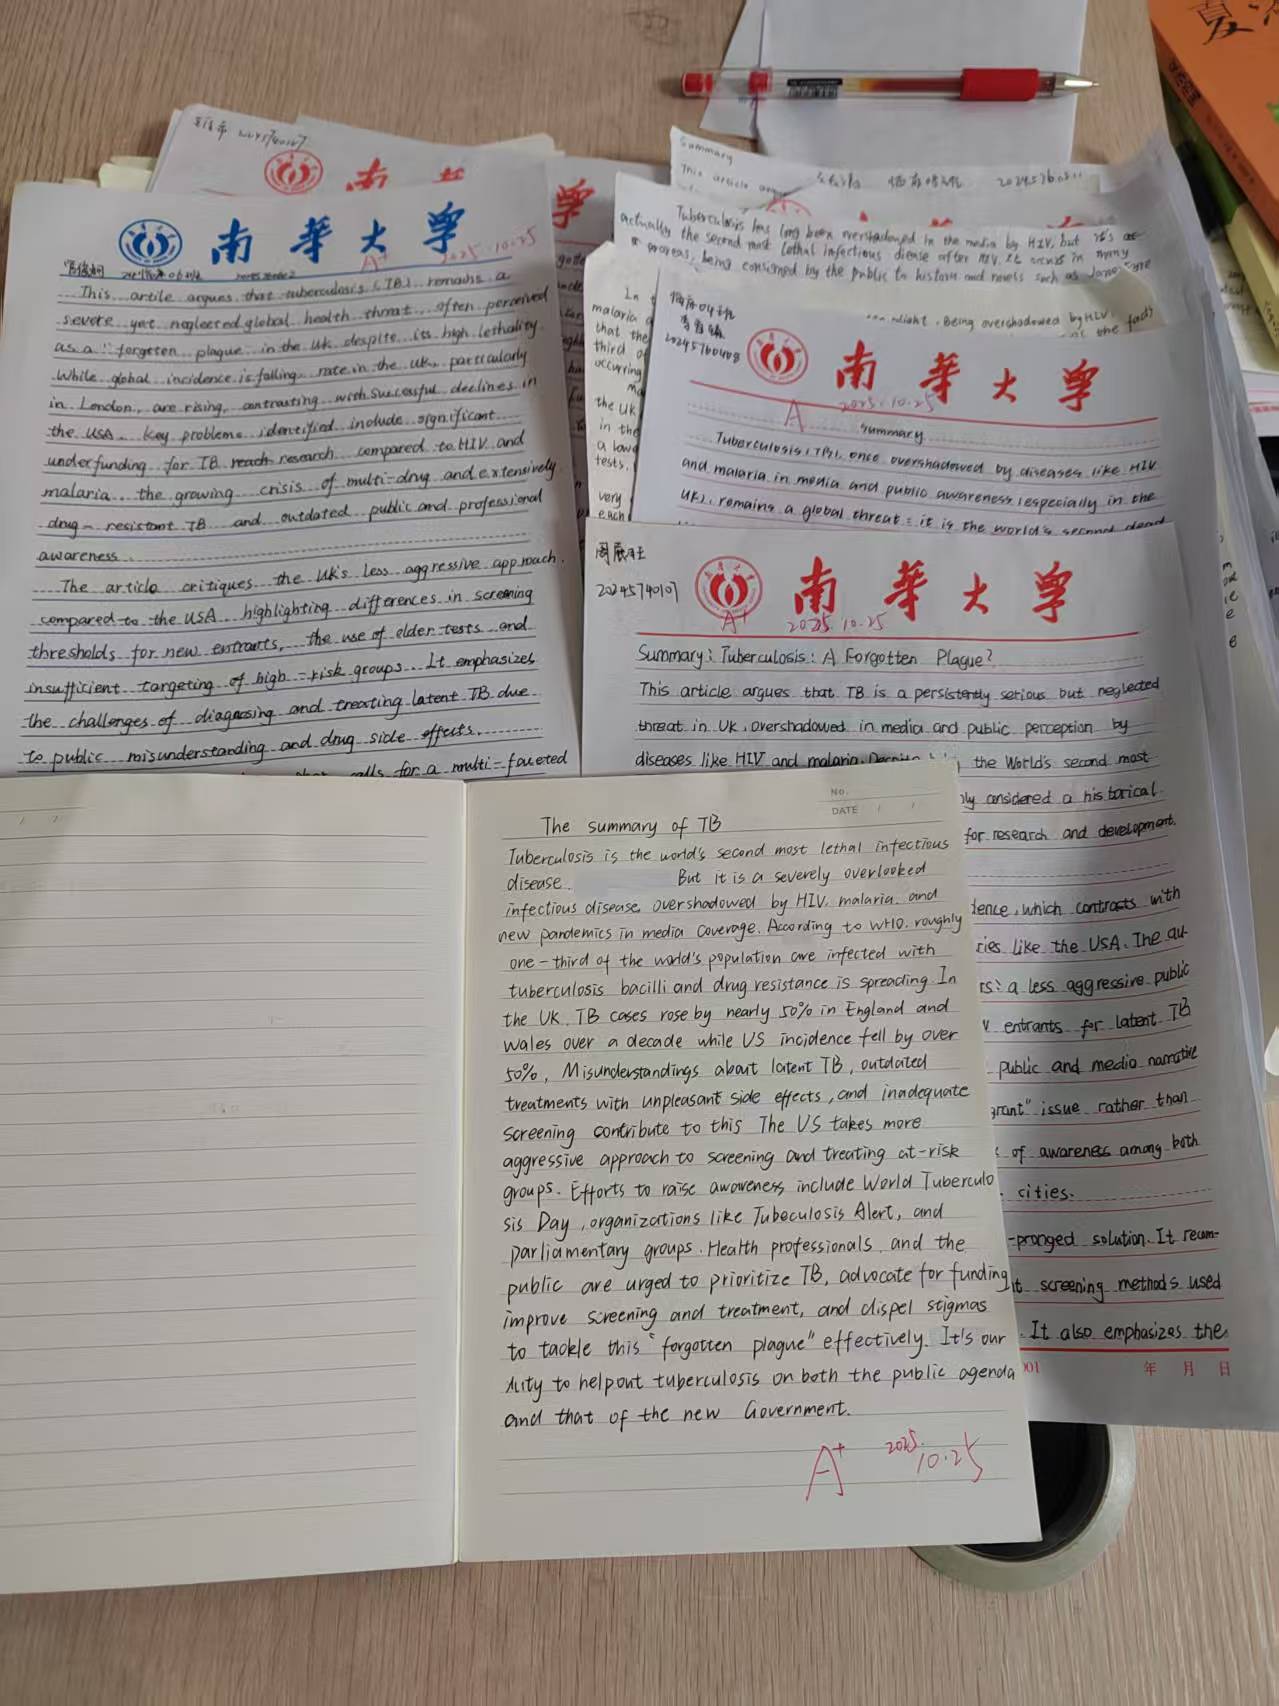 南華大学
A+ 2025.10.25
This artile argues that tuberculosis (TB) remains a
severe yet neglected global health threat often perceived
as a "forgotten plague in the UK despite its high lethality.
While global incidence is falling rate in the UK, particularly
in London, are rising, contrasting with successful declines in
the USA. Key problems identified include significant
underfunding for TB research compared to HIV and
malaria the growing crisis of multi-drug and extensively
drug-resistant TB and outdated public and professional
awareness.
The article critiques the UK's less aggressive approach
compared to the USA highlighting differences in screening
thresholds for new entrants, the use of elder tests and
insufficient targeting of high-risk groups. It emphasizes
the challenges of diagnosing and treating latent TB due
to public misunderstanding and drug side effects.
calls for a multi-faceted
南
Summary
This article
20245760511
Tuberculosis has long been overshadowed in the media by HIV, but it's
actually the second most lethal infectious disease after HIV. It occurs in many
being consigned by the public to history and novels such as Jane Eyre
Being overshadowed by HIV,
the fact
In
malaria
that the
third of
occurring
the UK
in the
a
tests.
very
each
20245760408
南華大学
A 2025.10.25
Summary
Tuberculosis (TB), once overshadowed by diseases like HIV
and malaria in media and public awareness (especially in the
UK), remains a global threat: it is the world's second
20245740107
南華大学
A+ 2025.10.25
Summary: Tuberculosis: A Forgotten Plague?
This article argues that TB is a persistently serious but neglected
threat in UK, overshadowed in media and public perception by
diseases like HIV and malaria. the World's second most
considered a historical
for research and development.
which contrasts with
like the USA. The au-
a less aggressive public
entrants for latent TB
public and media narrative
issue rather than
of awareness among both
cities.
-pronged solution. It recom-
screening methods used
It also emphasizes the
年 月 日
No.
DATE / /
The summary of TB
Tuberculosis is the world's second most lethal infectious
disease. But it is a severely overlooked
infectious disease, overshadowed by HIV, malaria, and
new pandemics in media coverage. According to WHO, roughly
one-third of the world's population are infected with
tuberculosis bacilli and drug resistance is spreading. In
the UK, TB cases rose by nearly 50% in England and
Wales over a decade while US incidence fell by over
50%, Misunderstandings about latent TB, outdated
treatments with unpleasant side effects, and inadequate
screening contribute to this The US takes more
aggressive approach to screening and treating at-risk
groups. Efforts to raise awareness include World Tuberculo
sis Day, organizations like Tubeculosis Alert, and
parliamentary groups. Health professionals, and the
public are urged to prioritize TB, advocate for funding
improve screening and treatment, and dispel stigmas
to tackle this "forgotten plague" effectively. It's our
duty to helpout tuberculosis on both the public agenda
and that of the new Government.
A+ 2025.10.25